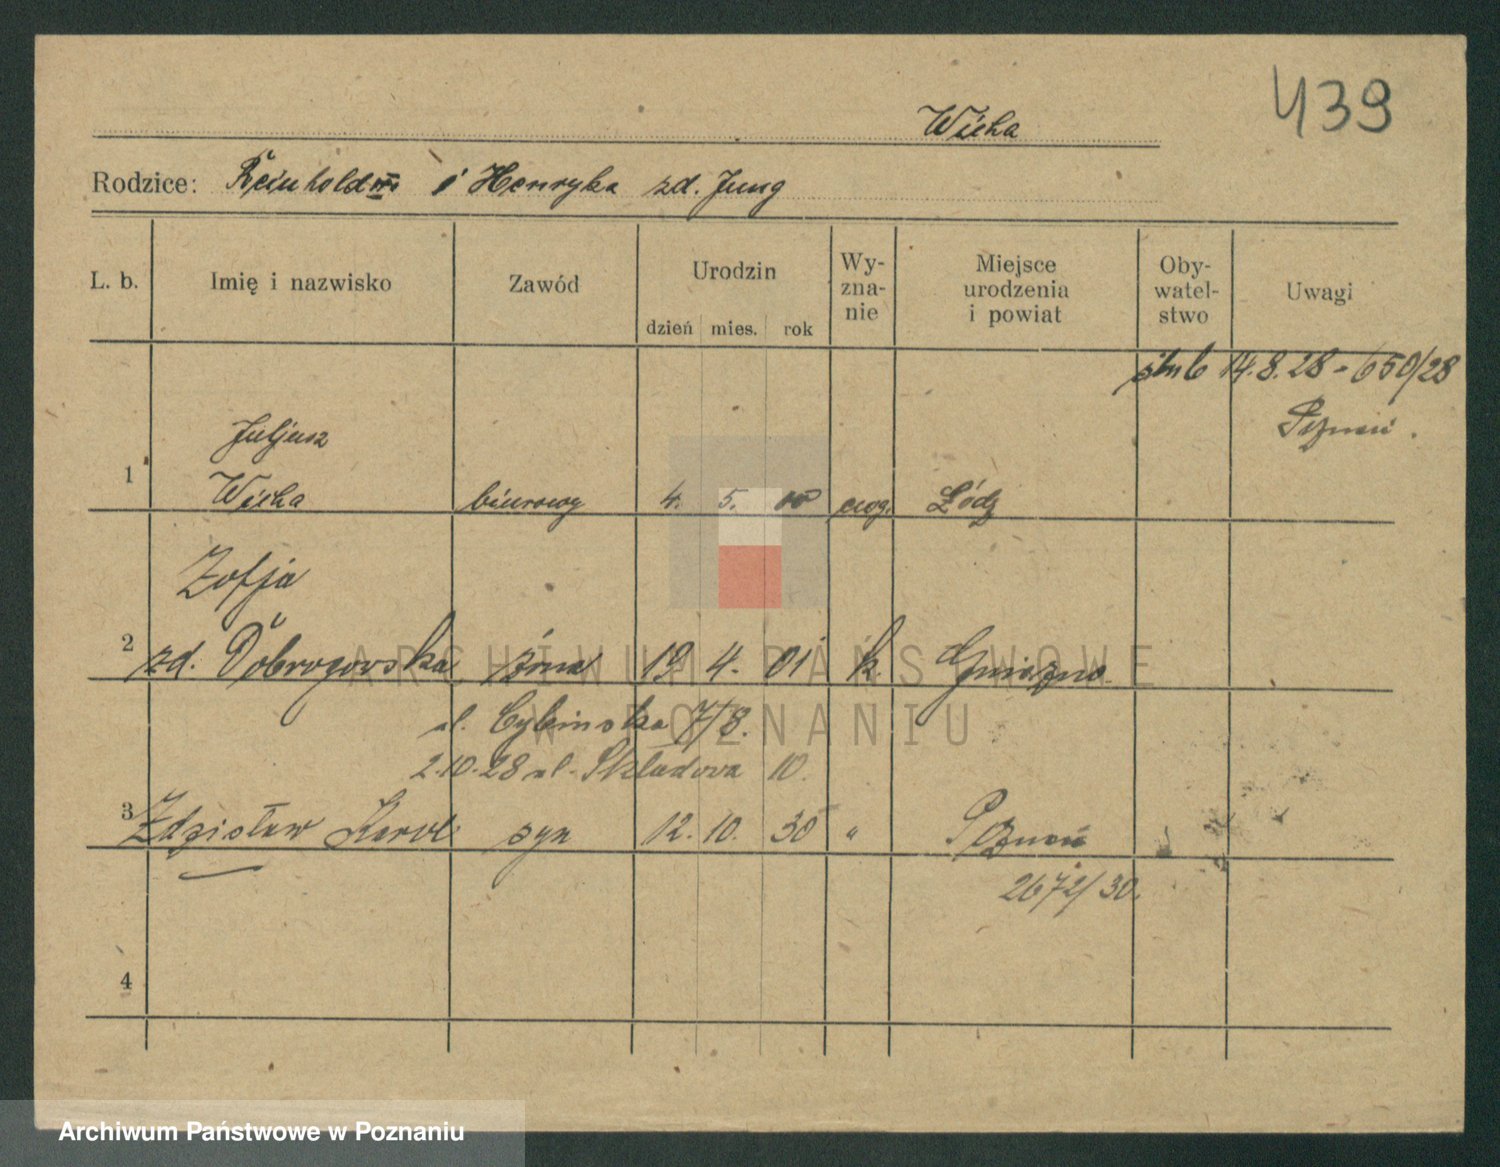 439
Wicha
Rodzice: Reinhold i Henryka zd. Jung
L. b. Imię i nazwisko Zawód Urodzin dzień mies. rok Wy-zna-nie Miejsce urodzenia i powiat Oby-watel-stwo Uwagi
ślub 14.8.28 - 650/28
Poznań.
Juljusz
1 Wicha biurowy 4. 5. 00 ewg. Łódź
Zofja
2 zd. Dobrogowska żona 19 4. 01 k. Gniezno
ul. Cybinska 7/8.
2.10.28 ul. Składowa 10.
3 Zdzisław Karol syn 12. 10. 30 " Poznań
2672/30.
4
ARCHIWUM PAŃSTWOWE
W POZNANIU
Archiwum Państwowe w Poznaniu